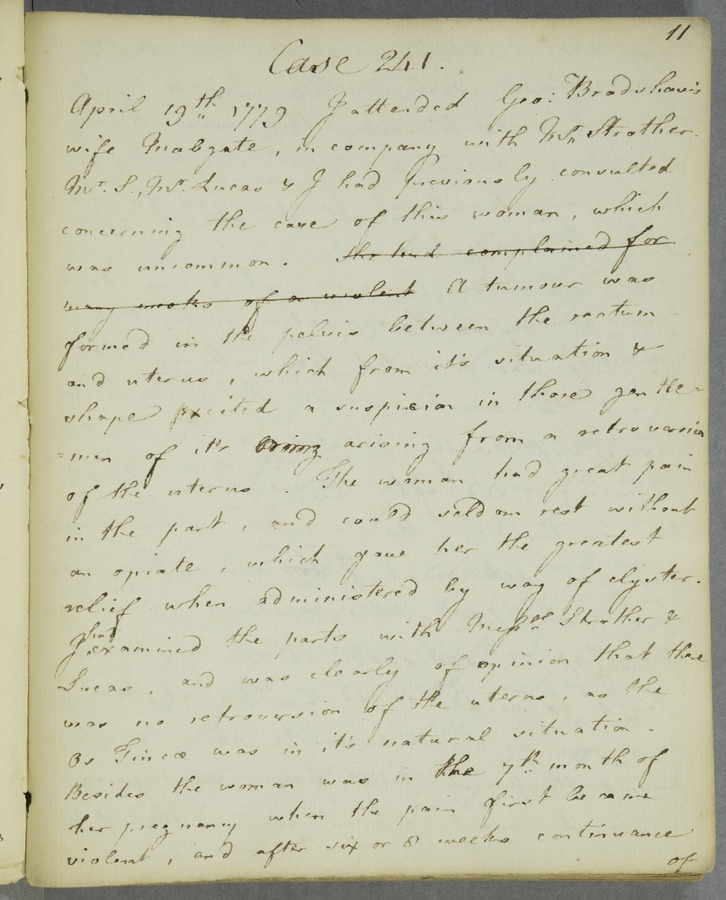 11
Case 241.
April 19th 1779 I attended Geo: Bradshaw's
wife Mabgate, in company with Mr. Strother.
Mr. S., Mr. Lucas & I had previously consulted
concerning the case of this woman, which
was uncommon. She had complained for
many weeks of a violent A tumour was
formed in the pelvis between the rectum
and uterus, which from it's situation &
shape excited a suspicion in those gentle=
=men of it's arising from a retroversion
of the uterus. The woman had great pain
in the part, and could seldom rest without
an opiate, which gave her the greatest
relief when administered by way of clyster.
I had examined the parts with Messrs Strother &
Lucas, and was clearly of opinion that there
was no retroversion of the uterus, as the
Os Tincæ was in it's natural situation.
Besides the woman was in the 7th month of
her pregnancy when the pain first became
violent, and after six or 8 weeks continuance
of